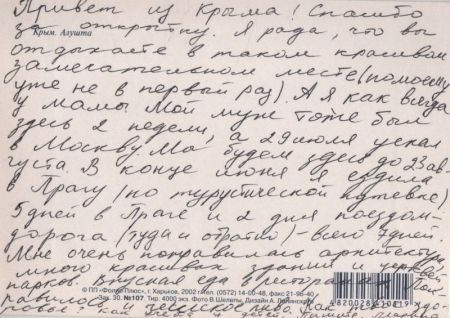 Привет из Крыма! Спасибо
за открытку. Я рада, что вы
Крым. Алушта
отдыхаете в таком красивом
замечательном месте (по-моему
уже не в первый раз). А я как всегда
у мамы. Мой муж тоже был
здесь 2 недели, а 29 июля уехал
в Москву. Мы будем здесь до 23 ав-
густа. В конце июня я ездила
в Прагу (по туристической путевке)
5 дней в Праге и 2 дня поездом-
дорога (туда и обратно) - всего 7 дней.
Мне очень понравилась архитектура,
много красивых зданий и церквей,
парков. Вкусная еда в ресторанах. Пон-
равилось и чешское пиво. Как твое здо-
ровье?
ПП «Фолио Плюс», г. Харьков, 2002 г. тел. (0572) 14-00-48, факс 21-96-40
Зак. 30. №107 Тир. 4000 экз. Фото В. Шелеты, Дизайн А.